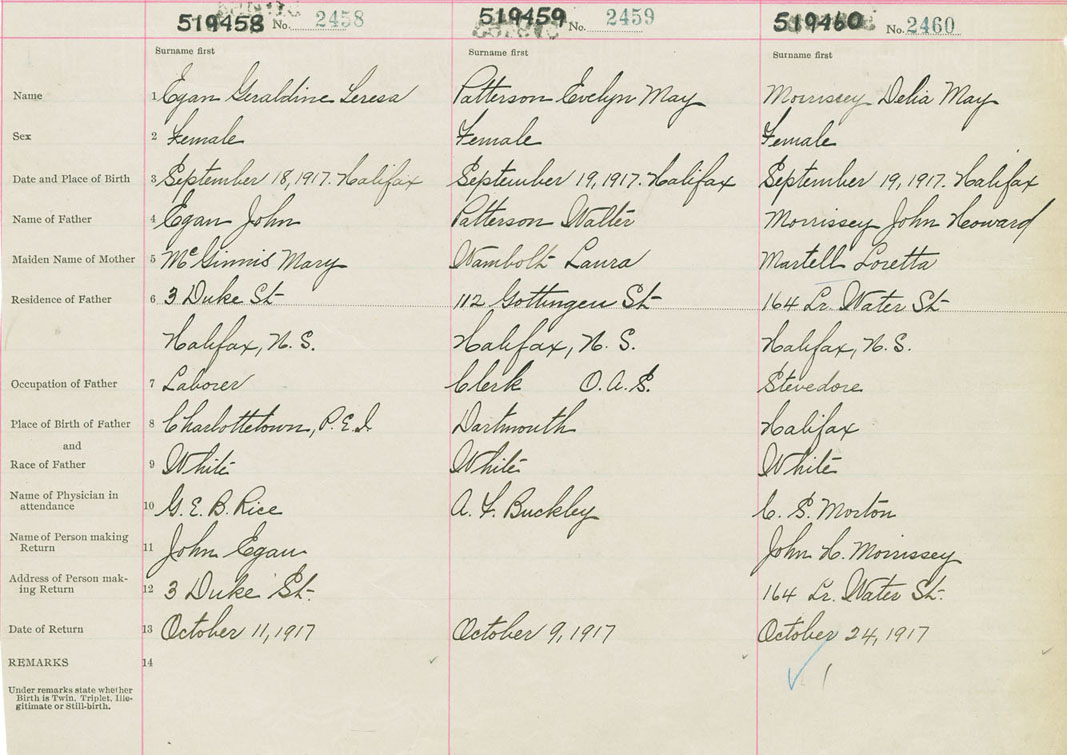 519458 No. 2458 519459 No. 2459 519460 No. 2460
Surname first Surname first Surname first
Name 1 Egan Geraldine Teresa Patterson Evelyn May Morrissey Delia May
Sex 2 Female Female Female
Date and Place of Birth 3 September 18, 1917. Halifax September 19, 1917. Halifax September 19, 1917. Halifax
Name of Father 4 Egan John Patterson Walter Morrissey John Howard
Maiden Name of Mother 5 McGinnis Mary Wambolt Laura Martell Loretta
Residence of Father 6 3 Duke St 112 Gottingen St 164 Lr. Water St
Halifax, N.S. Halifax, N.S. Halifax, N.S.
Occupation of Father 7 Laborer Clerk O.A.S. Stevedore
Place of Birth of Father 8 Charlottetown, P.E.I. Dartmouth Halifax
and
Race of Father 9 White White White
Name of Physician in
attendance 10 G. E. B. Rice A. F. Buckley C. S. Morton
Name of Person making
Return 11 John Egan John H. Morrissey
Address of Person mak-
ing Return 12 3 Duke St. 164 Lr. Water St.
Date of Return 13 October 11, 1917 October 9, 1917 October 24, 1917
REMARKS 14
Under remarks state whether
Birth is Twin, Triplet, Ille-
gitimate or Still-birth.